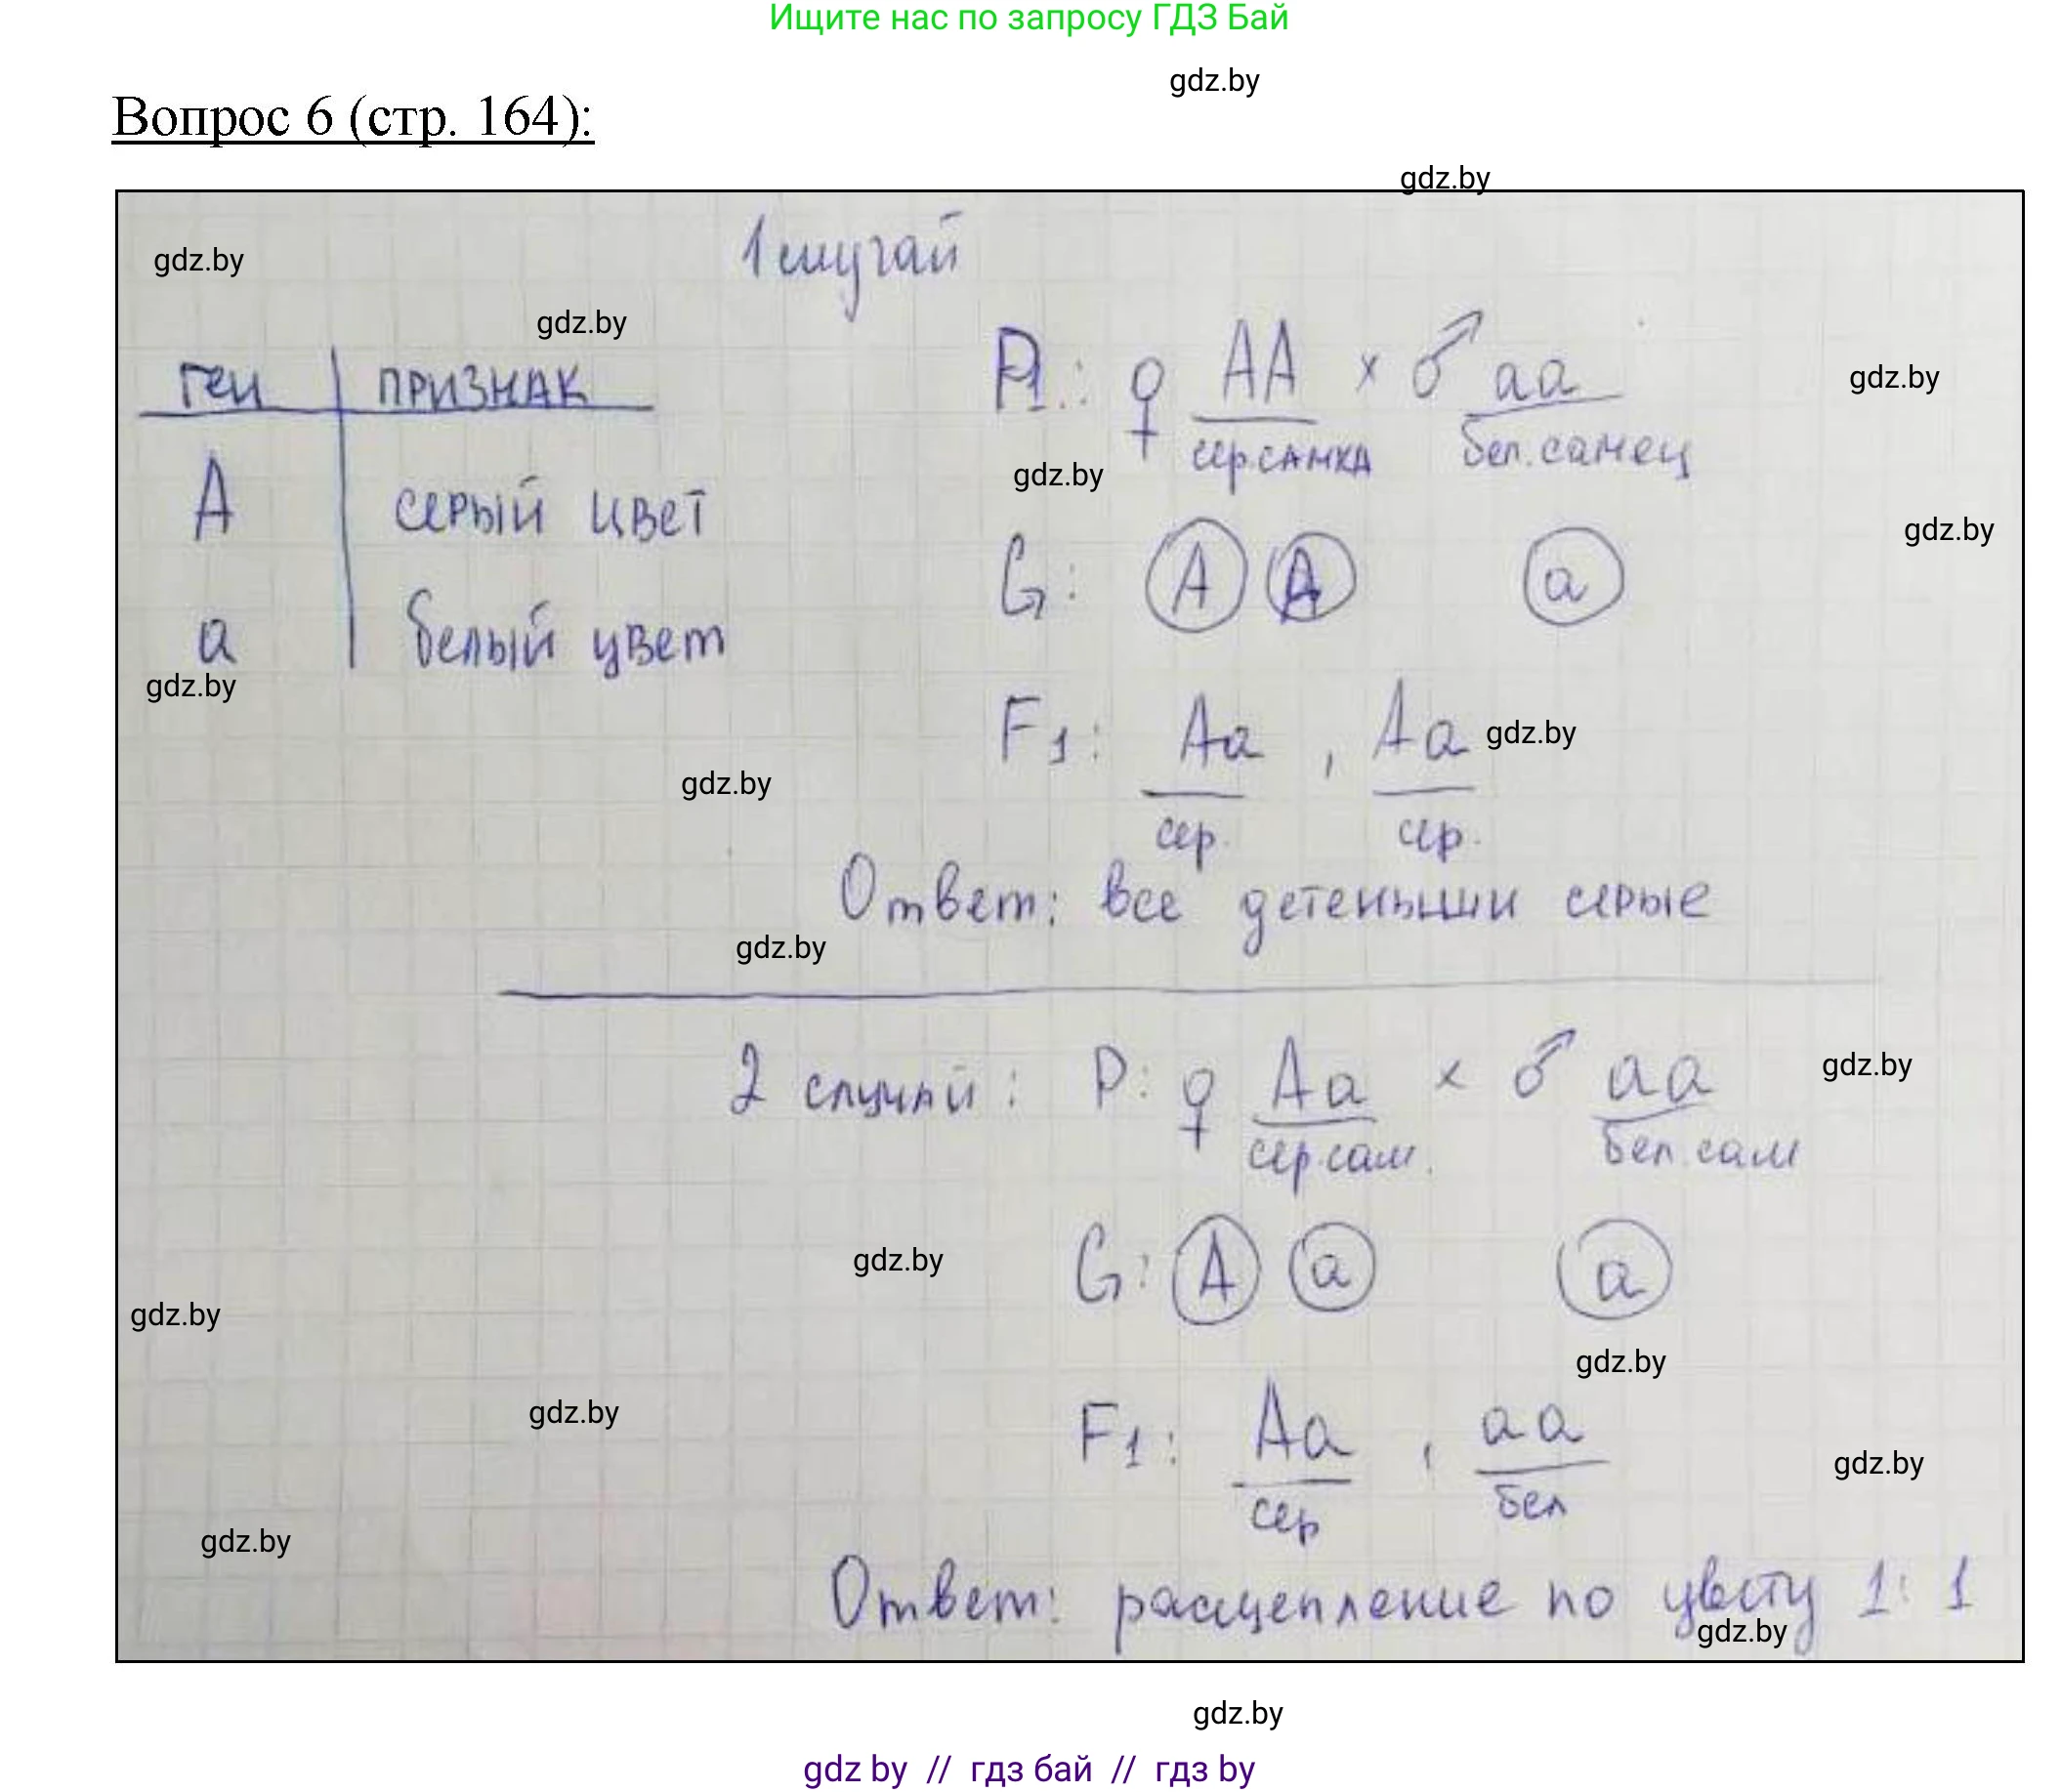 Ищите нас по запросу ГДЗ Бай
gdz.by
Вопрос 6 (стр. 164):
gdz.by
1 случай
gdz.by
gdz.by
P: ♀ AA × ♂ aa
gdz.by
ген | признак
сер.самка бел.самец
gdz.by
A | серый цвет
gdz.by
G: A A a
a | белый цвет
gdz.by
F1: Aa , Aa
gdz.by
gdz.by
сер. сер.
Ответ: все детеныши серые
gdz.by
2 случай: P: ♀ Aa × ♂ aa
gdz.by
сер.сам. бел.сам
G: A a a
gdz.by
gdz.by
gdz.by
F1: Aa , aa
gdz.by
gdz.by
сер бел
gdz.by
Ответ: расщепление по цвету 1:1
gdz.by
gdz.by
gdz by // гдз бай // гдз by